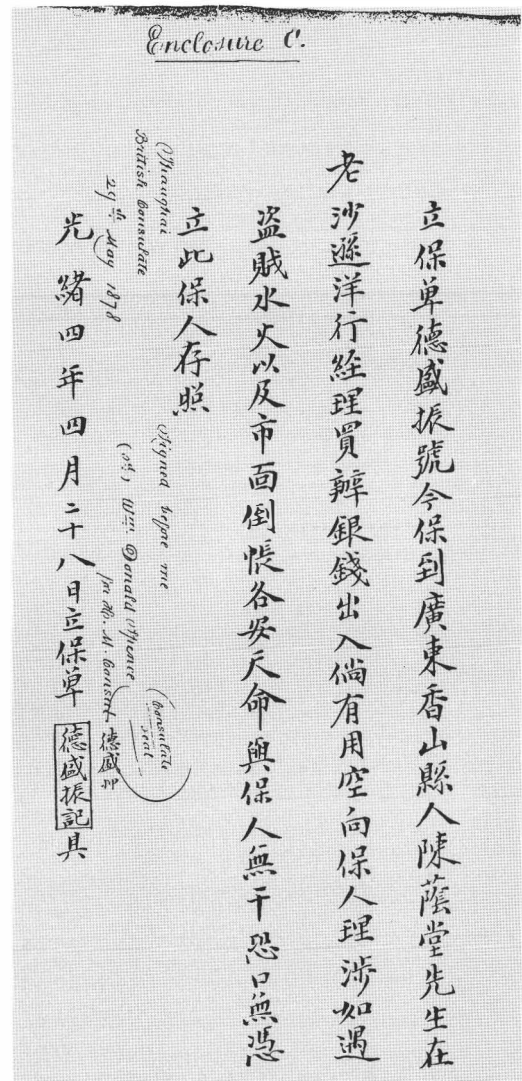 Enclosure C.
立保單德盛振號今保到廣東香山縣人陳蔭堂先生在
老沙遜洋行經理買辦銀錢出入倘有用空向保人理涉如遇
盜賊水火以及市面倒悵各安天命與保人無干恐口無憑
立此保人存照
Shanghai
British Consulate
29th May 1878
Signed before me
(sd) Wm Donald Spence
for H. M. Consul
Consulate
seal
德盛卯
光緒四年四月二十八日立保單 德盛振記 具